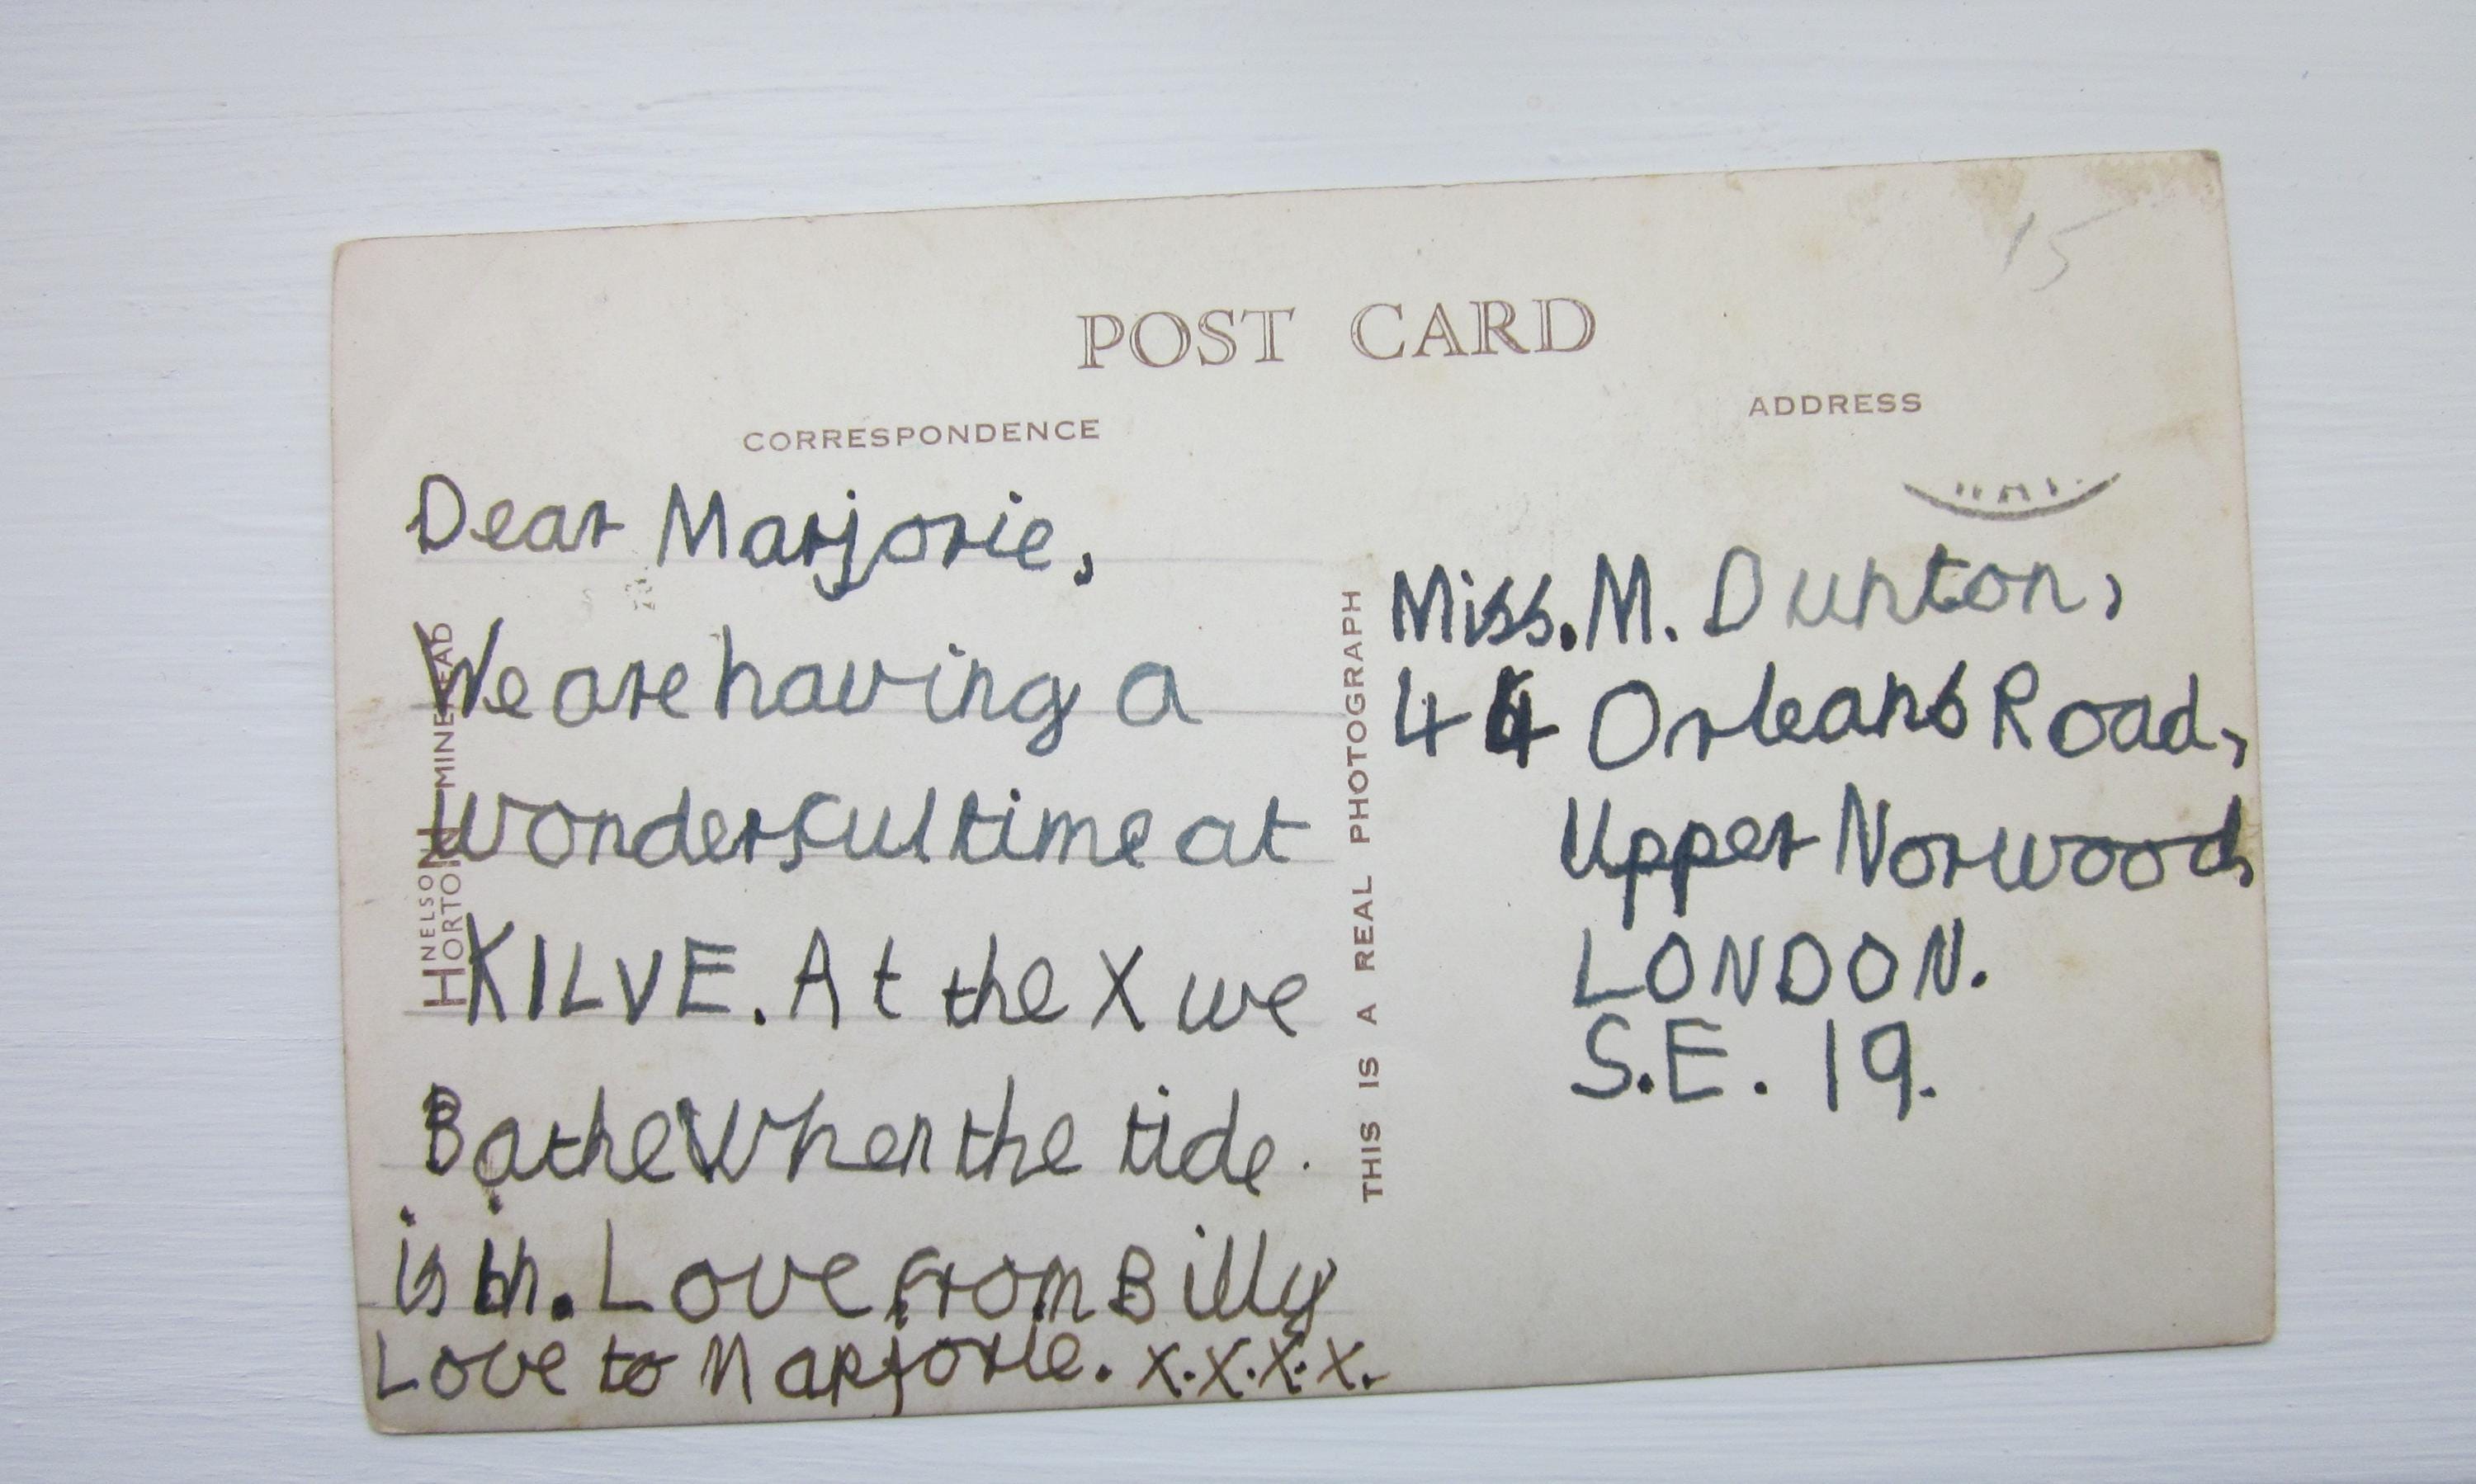 15
POST CARD
CORRESPONDENCE
ADDRESS
Dear Marjorie,
We are having a
wonderful time at
KILVE. At the X we
Bathe When the tide.
is in. Love from Billy
Love to Marjorie. x.x.x.x.
NELSON
HORTON MINEHEAD
THIS IS A REAL PHOTOGRAPH
Miss. M. Dunton,
44 Orleans Road,
Upper Norwood,
LONDON.
S.E. 19.